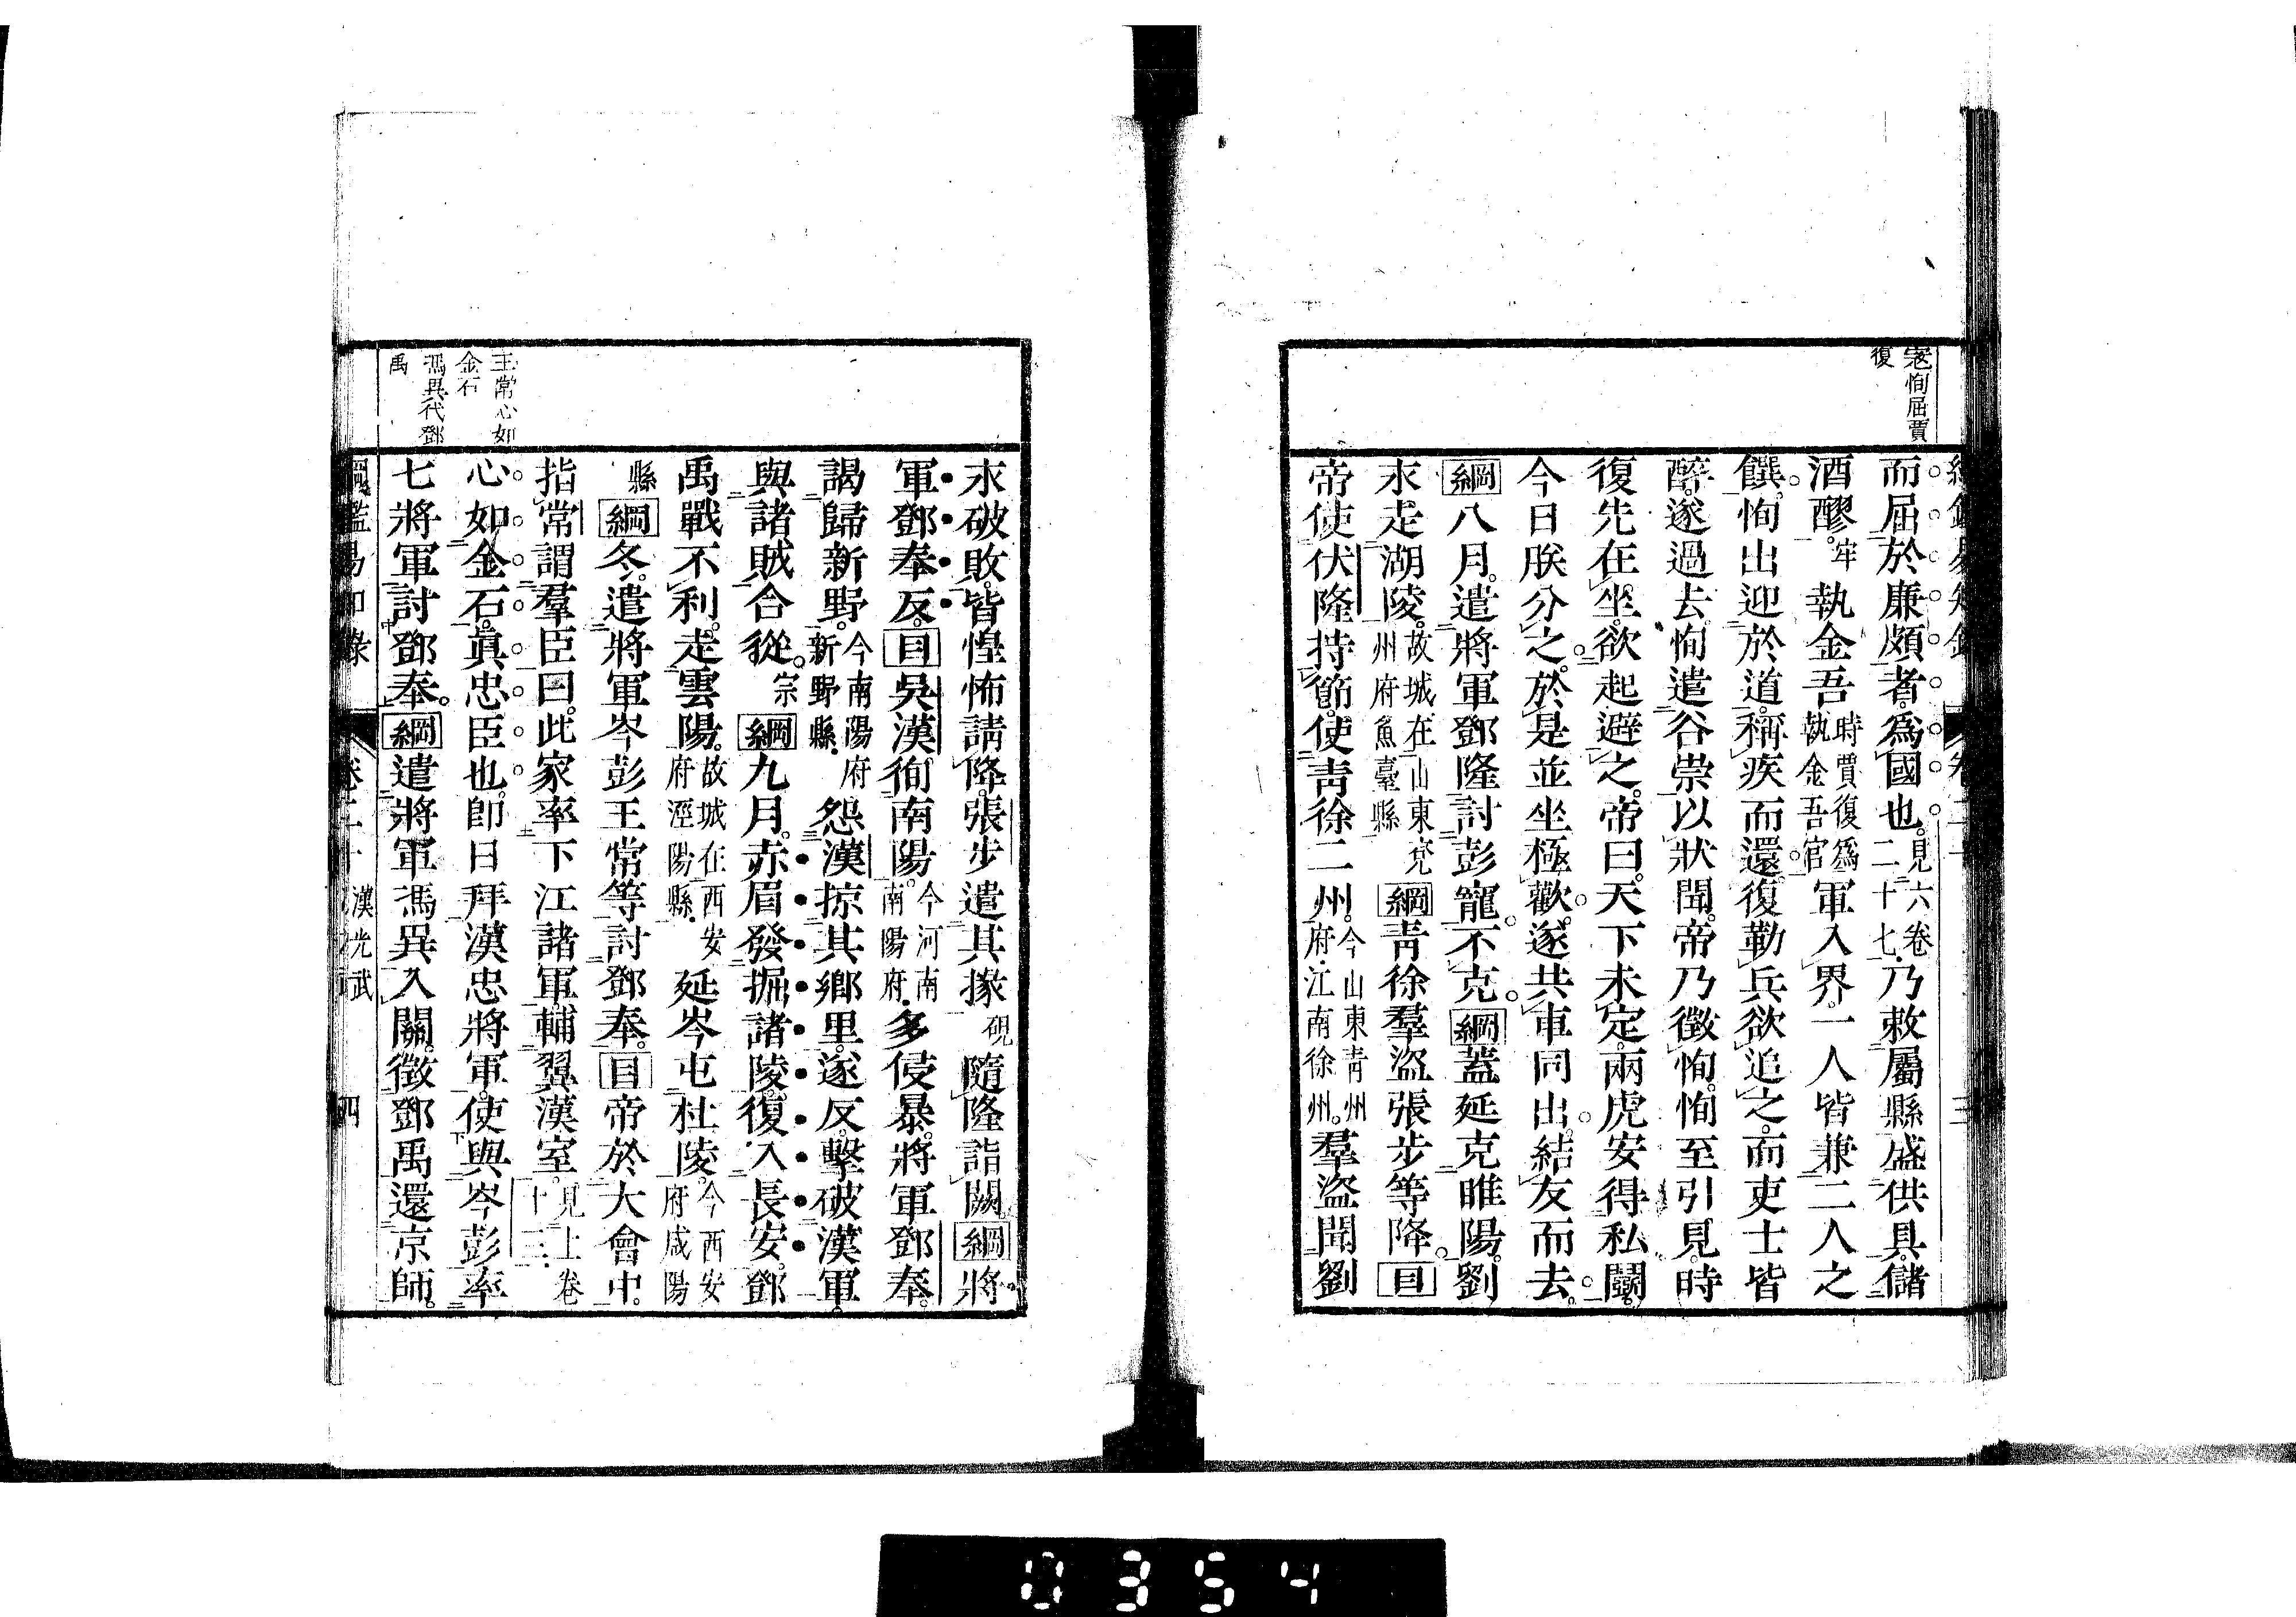 寇恂屈賈
復
而屈於廉頗者爲國也見六卷二十七乃敕屬縣盛供具儲
酒醪牢執金吾時賈復爲執金吾官軍入界一人皆兼二人之
饌恂出迎於道稱疾而還復勒兵欲追之而吏士皆
醉遂過去恂遣谷崇以狀聞帝乃徵恂恂至引見時
復先在坐欲起避之帝曰天下未定兩虎安得私鬭
今日朕分之於是並坐極歡遂共車同出結友而去
綱八月遣將軍鄧隆討彭寵不克綱蓋延克睢陽劉
永走湖陵故城在山東兗州府魚臺縣綱青徐羣盜張步等降目
帝使伏隆持節使青徐二州今山東青州府江南徐州羣盜聞劉
永破敗皆惶怖請降張步遣其掾硯隨隆詣闕綱將
軍鄧奉反目吳漢徇南陽今河南南陽府多侵暴將軍鄧奉
謁歸新野今南陽府新野縣怨漢掠其鄉里遂反擊破漢軍
與諸賊合從宗綱九月赤眉發掘諸陵復入長安鄧
禹戰不利走雲陽故城在西安府涇陽縣延岑屯杜陵今西安府咸陽
縣綱冬遣將軍岑彭王常等討鄧奉目帝於大會中
指常謂羣臣曰此家率下江諸軍輔翼漢室見上卷十三
心如金石眞忠臣也卽日拜漢忠將軍使與岑彭率
七將軍討鄧奉綱遣將軍馮異入關徵鄧禹還京師
王常心如
金石
馮異代鄧
禹
綱鑑易知錄 卷二十 漢光武 四